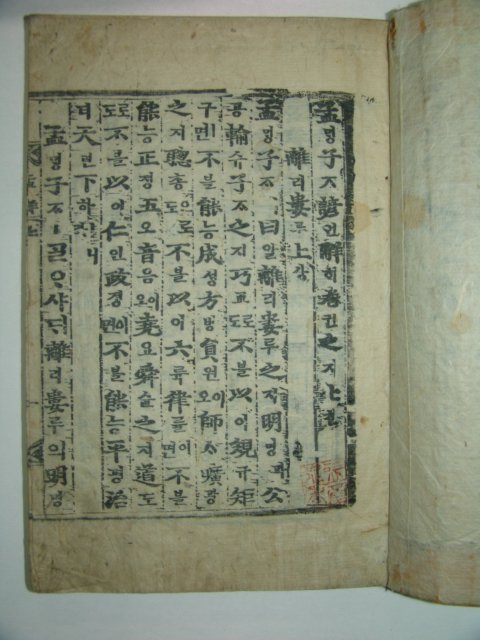 孟ᄆᆡᆼ子ᄌᆞ諺언解ᄒᆡ卷권之지七칠
離리婁루上샹
孟ᄆᆡᆼ子ᄌᆞㅣ曰왈離리婁루之지明명과公
공輸슈子ᄌᆞ之지巧교로도不블以이規규矩
구ㅣ면不블能능成셩方방員원이오師ᄉᆞ曠광
之지聰총으로도不블以이六륙律률이면不블
能능正졍五오音음이오堯요舜슌之지道도
로도不블以이仁인政졍이면不블能능平평治
티天텬下하
孟ᄆᆡᆼ子ᄌᆞㅣᄀᆞᆯᄋᆞ샤ᄃᆡ離리婁루의明명